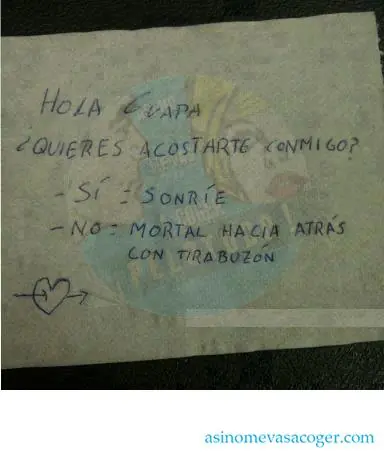 HOLA GUAPA
¿QUIERES ACOSTARTE CONMIGO?
- SÍ = SONRÍE
- NO = MORTAL HACIA ATRÁS
CON TIRABUZÓN
asinomevasacoger.com